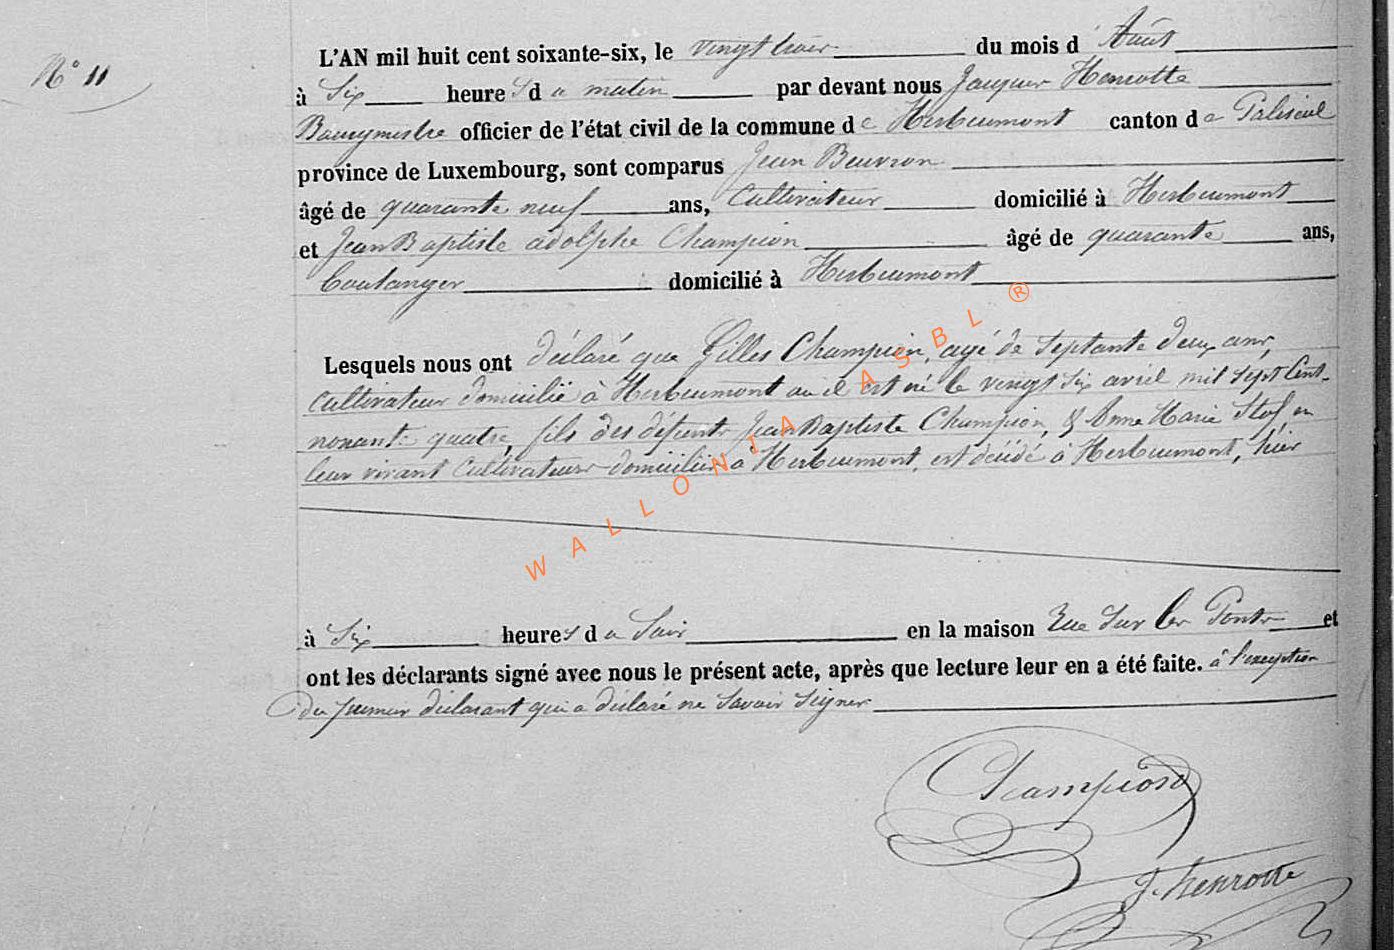 N° 11
L'AN mil huit cent soixante-six, le vingt trois du mois d'Août
à Six heures du matin par devant nous Jacques Henrotte
Bourgmestre officier de l'état civil de la commune de Herbeumont canton de Paliseul
province de Luxembourg, sont comparus Jean Beuvron
âgé de quarante neuf ans, Cultivateur domicilié à Herbeumont
et Jean Baptiste adolphe Champion âgé de quarante ans,
boulanger domicilié à Herbeumont
Lesquels nous ont déclaré que Gilles Champion, agé de Septante deux ans,
Cultivateur domicilié à Herbeumont ou il est né le vingt Six avril mil Sept Cent
nonante quatre, fils des défunts Jean Baptiste Champion, & Anne Marie en
leur vivant Cultivateurs domiciliés à Herbeumont, est décédé à Herbeumont, hier
à Six heures du Soir en la maison Rue Sur les Ponts et
ont les déclarants signé avec nous le présent acte, après que lecture leur en a été faite. à l'exception
du premier déclarant qui a déclaré ne Savoir Signer
Champion
J. henrotte
WALLONIA ASBL ®